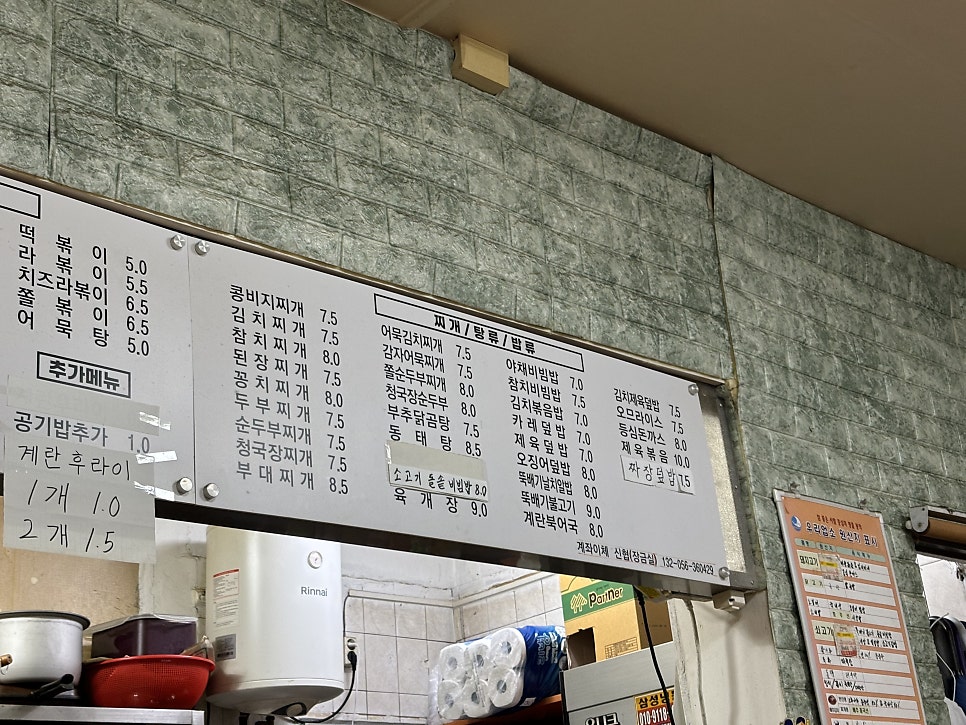 떡볶이 5.0
라볶이 5.5
치즈라볶이 6.5
쫄볶이 6.5
어묵탕 5.0
추가메뉴
공기밥추가 1.0
계란후라이
1개 1.0
2개 1.5
찌개/탕류/밥류
콩비지찌개 7.5
김치찌개 7.5
참치찌개 8.0
된장찌개 7.5
꽁치찌개 8.0
두부찌개 7.5
순두부찌개 7.5
청국장찌개 7.5
부대찌개 8.5
어묵김치찌개 7.5
감자어묵찌개 7.5
쫄순두부찌개 8.0
청국장순두부 8.0
부추닭곰탕 7.5
동태탕 8.5
소고기돌솥비빔밥 8.0
육개장 9.0
야채비빔밥 7.0
참치비빔밥 7.5
김치볶음밥 7.0
카레덮밥 7.0
제육덮밥 7.0
오징어덮밥 8.0
뚝배기날치알밥 8.0
뚝배기불고기 9.0
계란북어국 8.0
김치제육덮밥 7.5
오므라이스 7.5
등심돈까스 8.0
제육볶음 10.0
짜장덮밥 7.5
계좌이체 신협(장금실) 132-056-360429
Rinnai
Partner
우리업소 원산지 표시
돼지고기
쇠고기
010-9118-